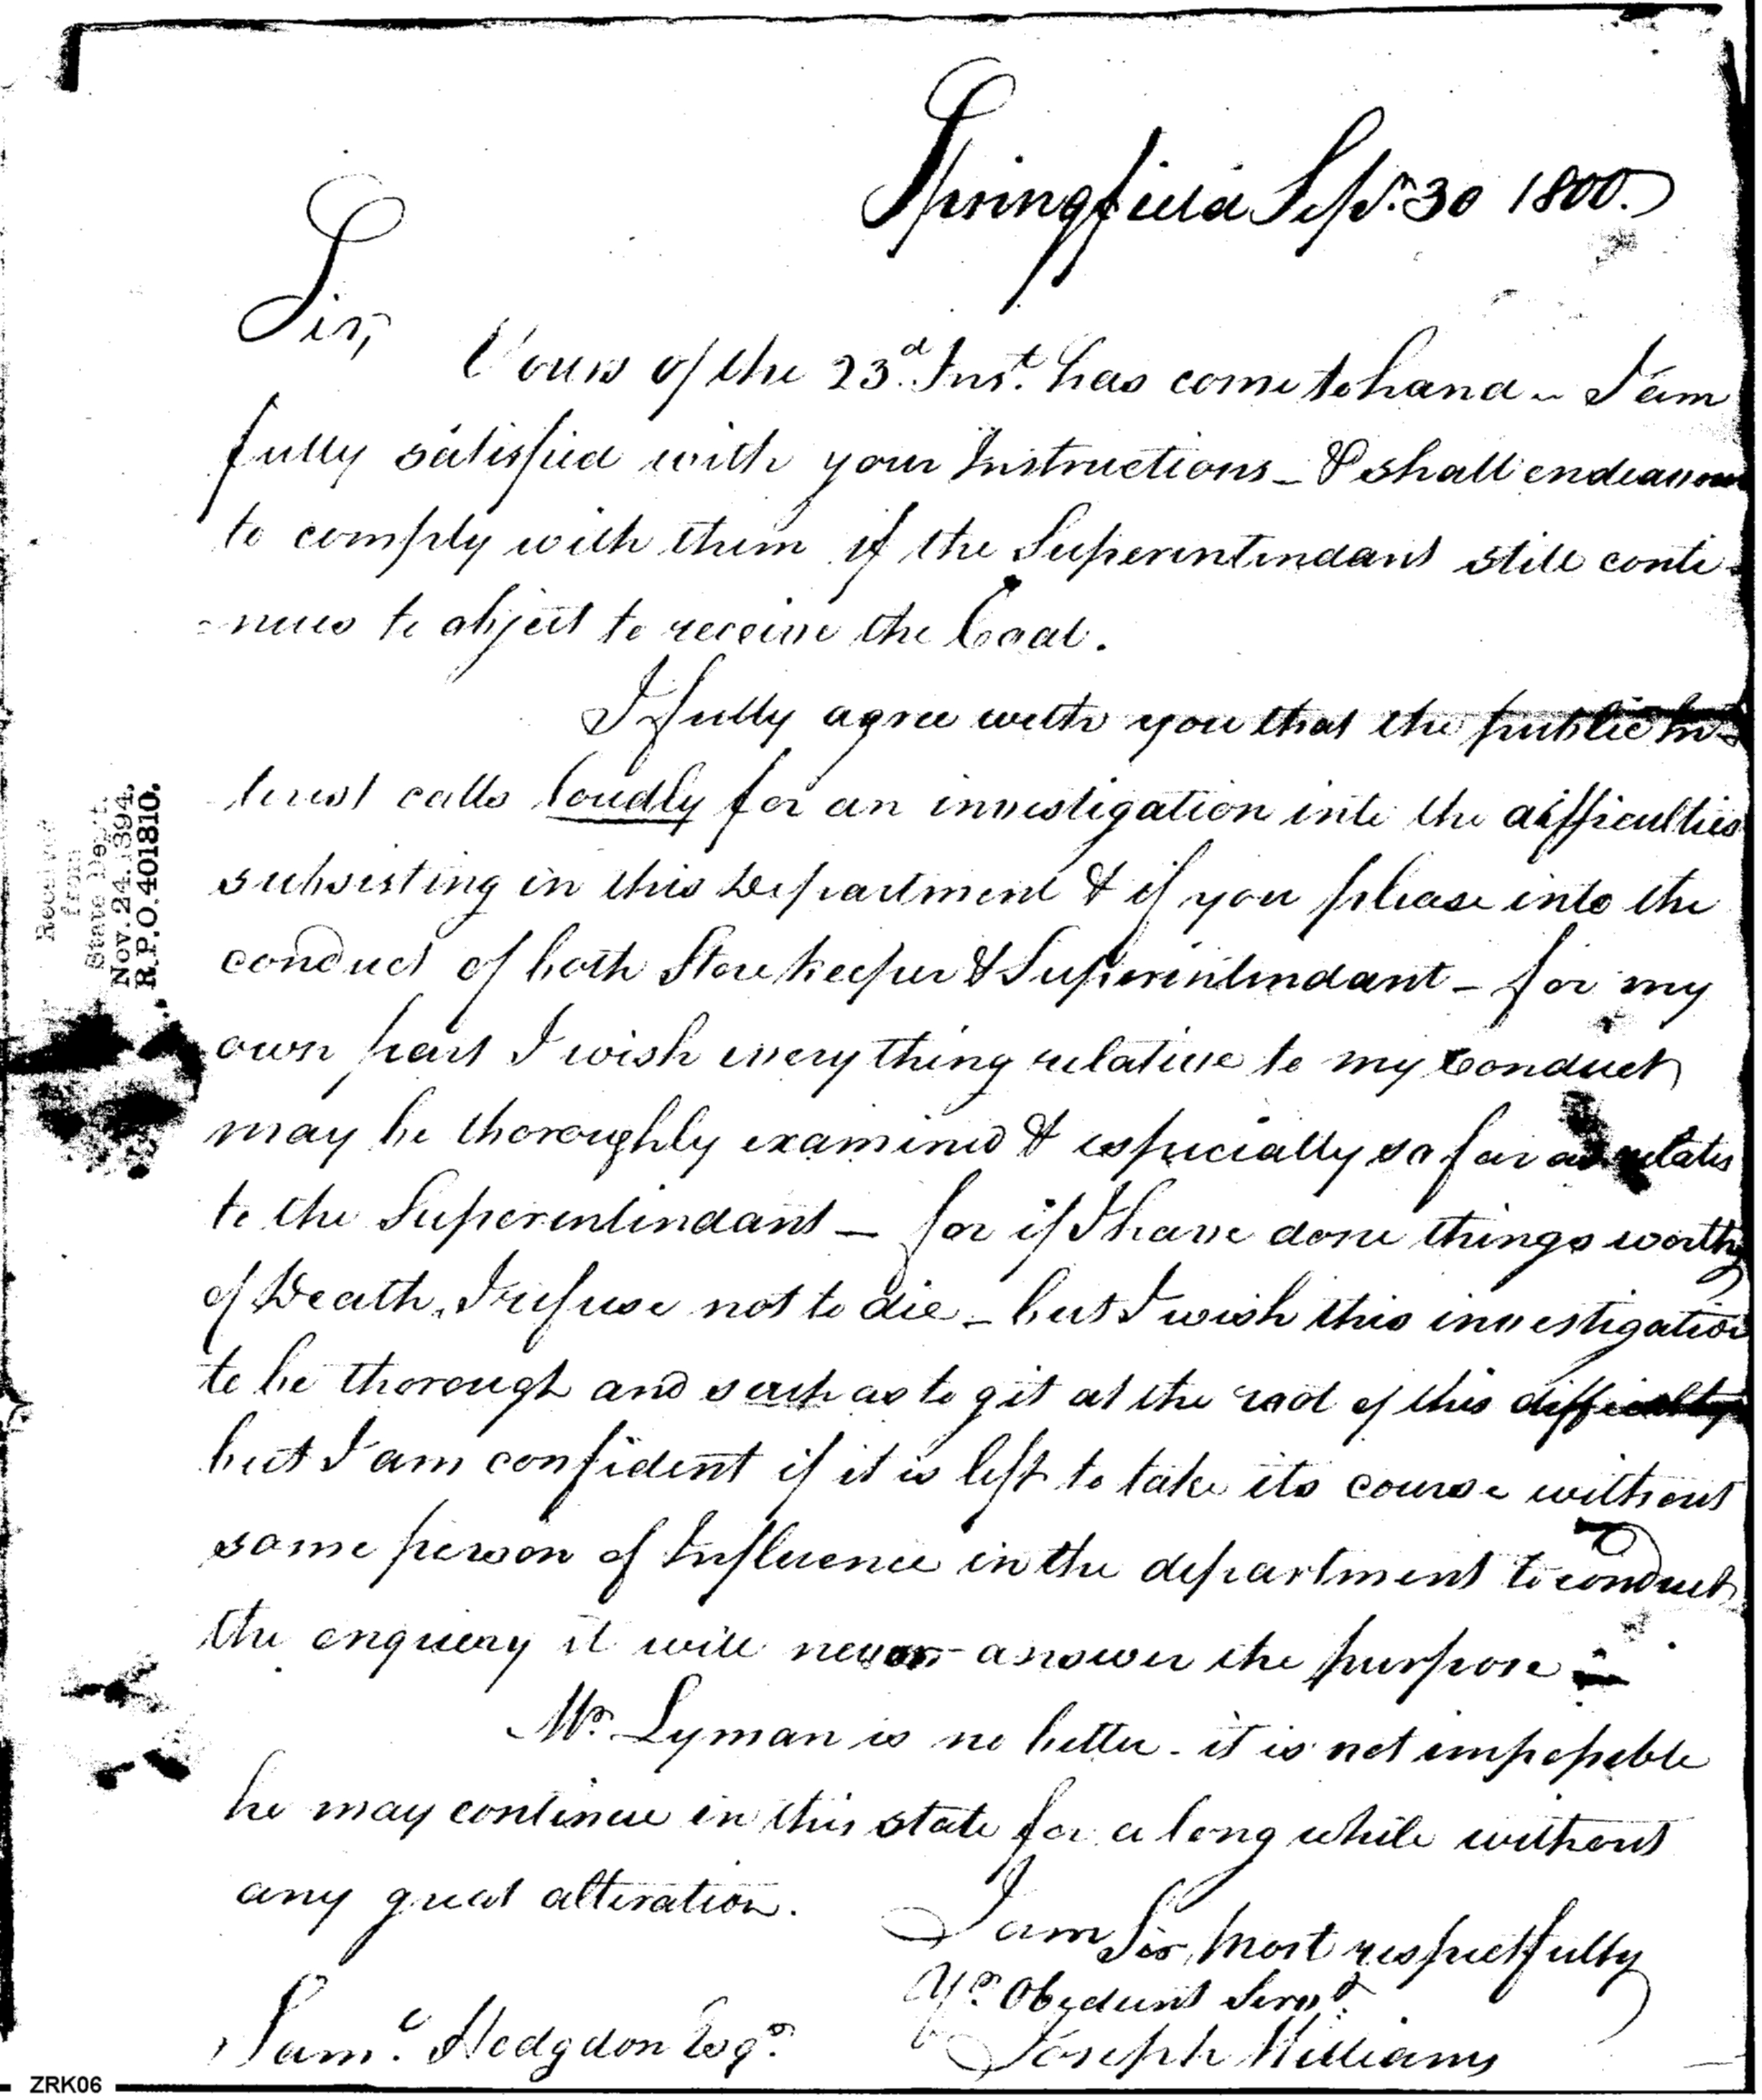 Springfield Sepr. 30 1800.
Sir,
Yours of the 23d. Inst. has come to hand - I am
fully satisfied with your Instructions - & shall endeavour
to comply with them if the Superintendant still conti-
-nues to object to receive the Coal.
I fully agree with you that the public In-
-terest calls loudly for an investigation into the difficulties
subsisting in this Department & if you please into the
conduct of both Storekeeper & Superintendant - for my
own part I wish every thing relative to my conduct
may be thoroughly examined & especially so far as relates
to the Superintendant - for if I have done things worthy
of Death, I refuse not to die - but I wish this investigation
to be thorough and such as to git at the root of this difficulty
but I am confident if it is left to take its course without
some person of Influence in the department to conduct
the enquiery it will never answer the purpose -
Mr. Lyman is no better - it is not impossible
he may continue in this state for a long while without
any great alteration.
I am Sir, most respectfully
Yr. Obedient Servt.
Joseph Williams
Saml. Hodgdon Esqr.
Received
from
State Dep't.
Nov. 24. 1894.
R.P.O. 401810.
ZRK06